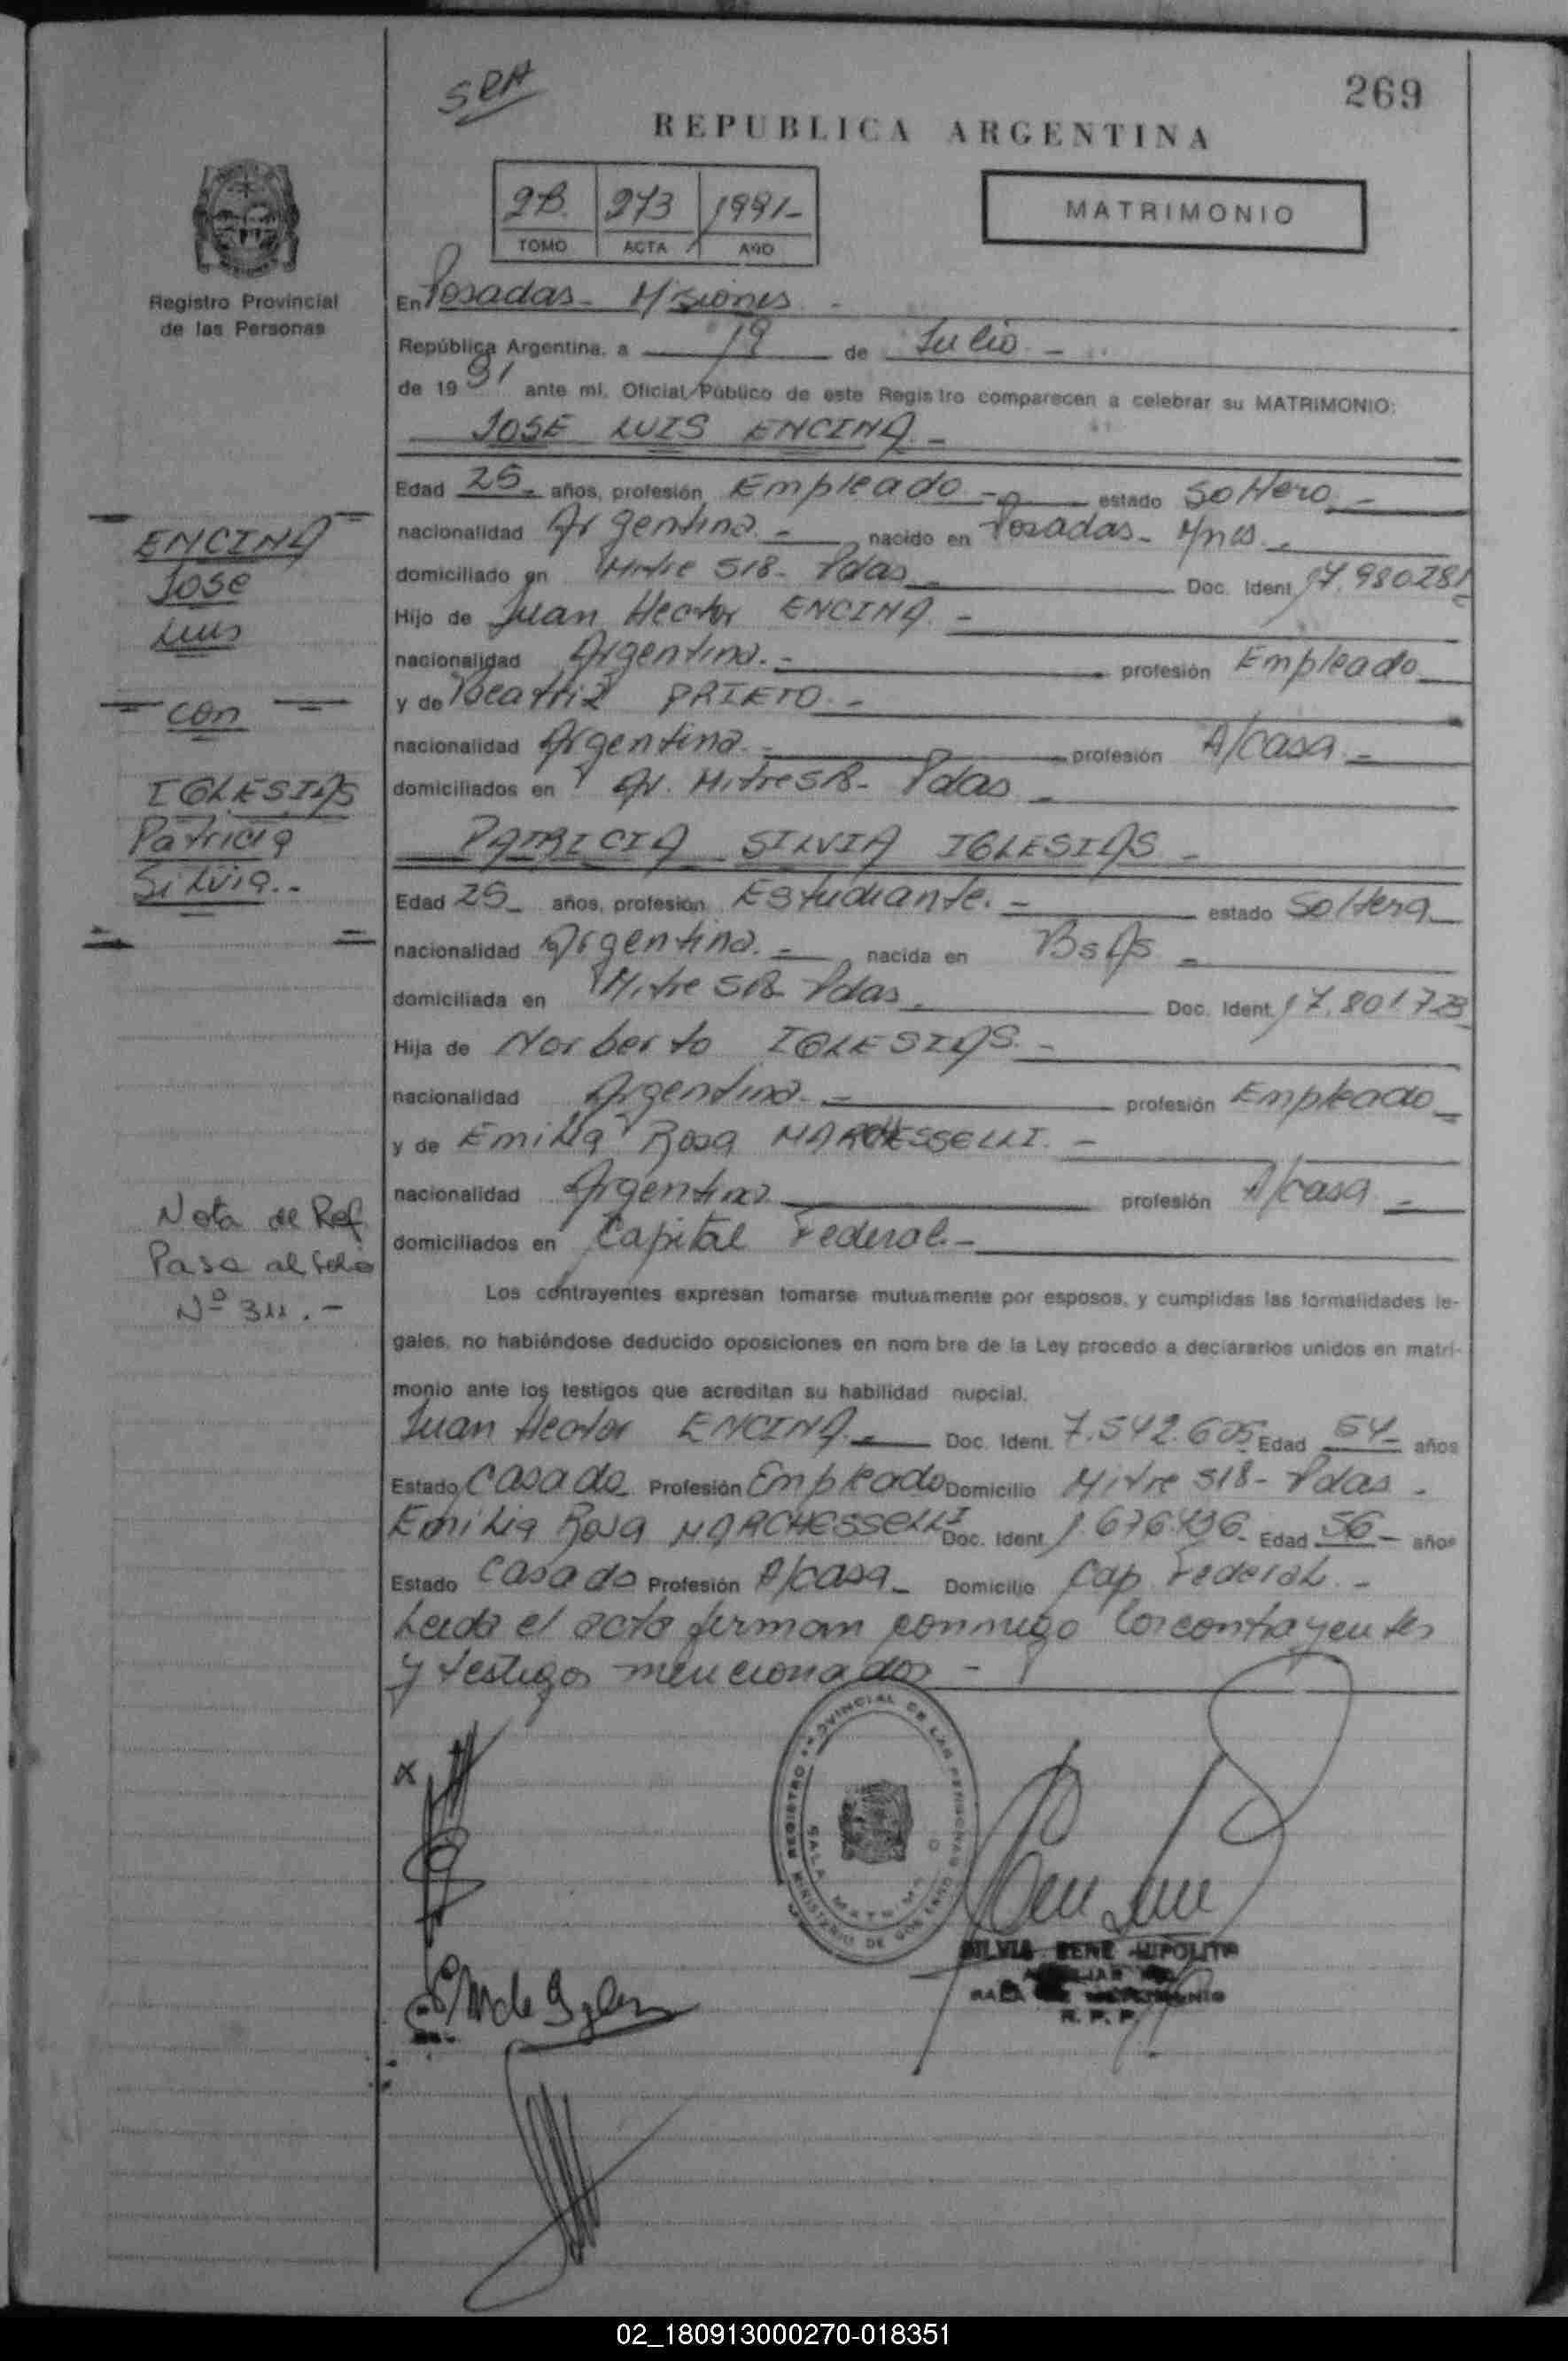 SRA
269
REPUBLICA ARGENTINA
2B. 273 1991-
TOMO ACTA AÑO
MATRIMONIO
Registro Provincial
de las Personas
En Posadas - Misiones -
República Argentina, a 19 de Julio -
de 1991 ante mí, Oficial Público de este Registro comparecen a celebrar su MATRIMONIO:
JOSE LUIS ENCINA -
Edad 25 - años, profesión Empleado - estado Soltero -
nacionalidad Argentina - nacido en Posadas - Mnes -
domiciliado en Mitre 518 - Pdas - Doc. Ident. 17.980281
Hijo de Juan Hector ENCINA -
nacionalidad Argentina - profesión Empleado
y de Beatriz PRIETO -
nacionalidad Argentina - profesión A/casa -
domiciliados en Av. Mitre 518 - Pdas -
PATRICIA SILVIA IGLESIAS -
Edad 25 - años, profesión Estudiante - estado Soltera -
nacionalidad Argentina - nacida en BsAs -
domiciliada en Mitre 518 - Pdas - Doc. Ident. 17.801723
Hija de Norberto IGLESIAS -
nacionalidad Argentina - profesión Empleado -
y de Emilia Rosa MARCHESSELLI -
nacionalidad Argentina profesión A/casa -
domiciliados en Capital Federal -
Los contrayentes expresan tomarse mutuamente por esposos, y cumplidas las formalidades le-
gales, no habiéndose deducido oposiciones en nom bre de la Ley procedo a declararlos unidos en matri-
monio ante los testigos que acreditan su habilidad nupcial.
Juan Hector ENCINA - Doc. Ident. 7.542.605 Edad 54 - años
Estado Casado Profesión Empleado Domicilio Mitre 518 - Pdas -
Emilia Rosa MARCHESSELLI Doc. Ident. 1.676.436 - Edad 56 - años
Estado Casada Profesión A/casa - Domicilio Cap. Federal -
Leida el acta firman conmigo los contrayentes
y testigos mencionados -
ENCINA
Jose
Luis
con
IGLESIAS
Patricia
Silvia -
Nota de Ref.
Pasa al folio
Nº 311. -
X
REGISTRO PROVINCIAL DE LAS PERSONAS
MINISTERIO DE GOBIERNO
SALA MATRIMO
SILVIA RENE HIPOLITO
R. P. P.
02_180913000270-018351